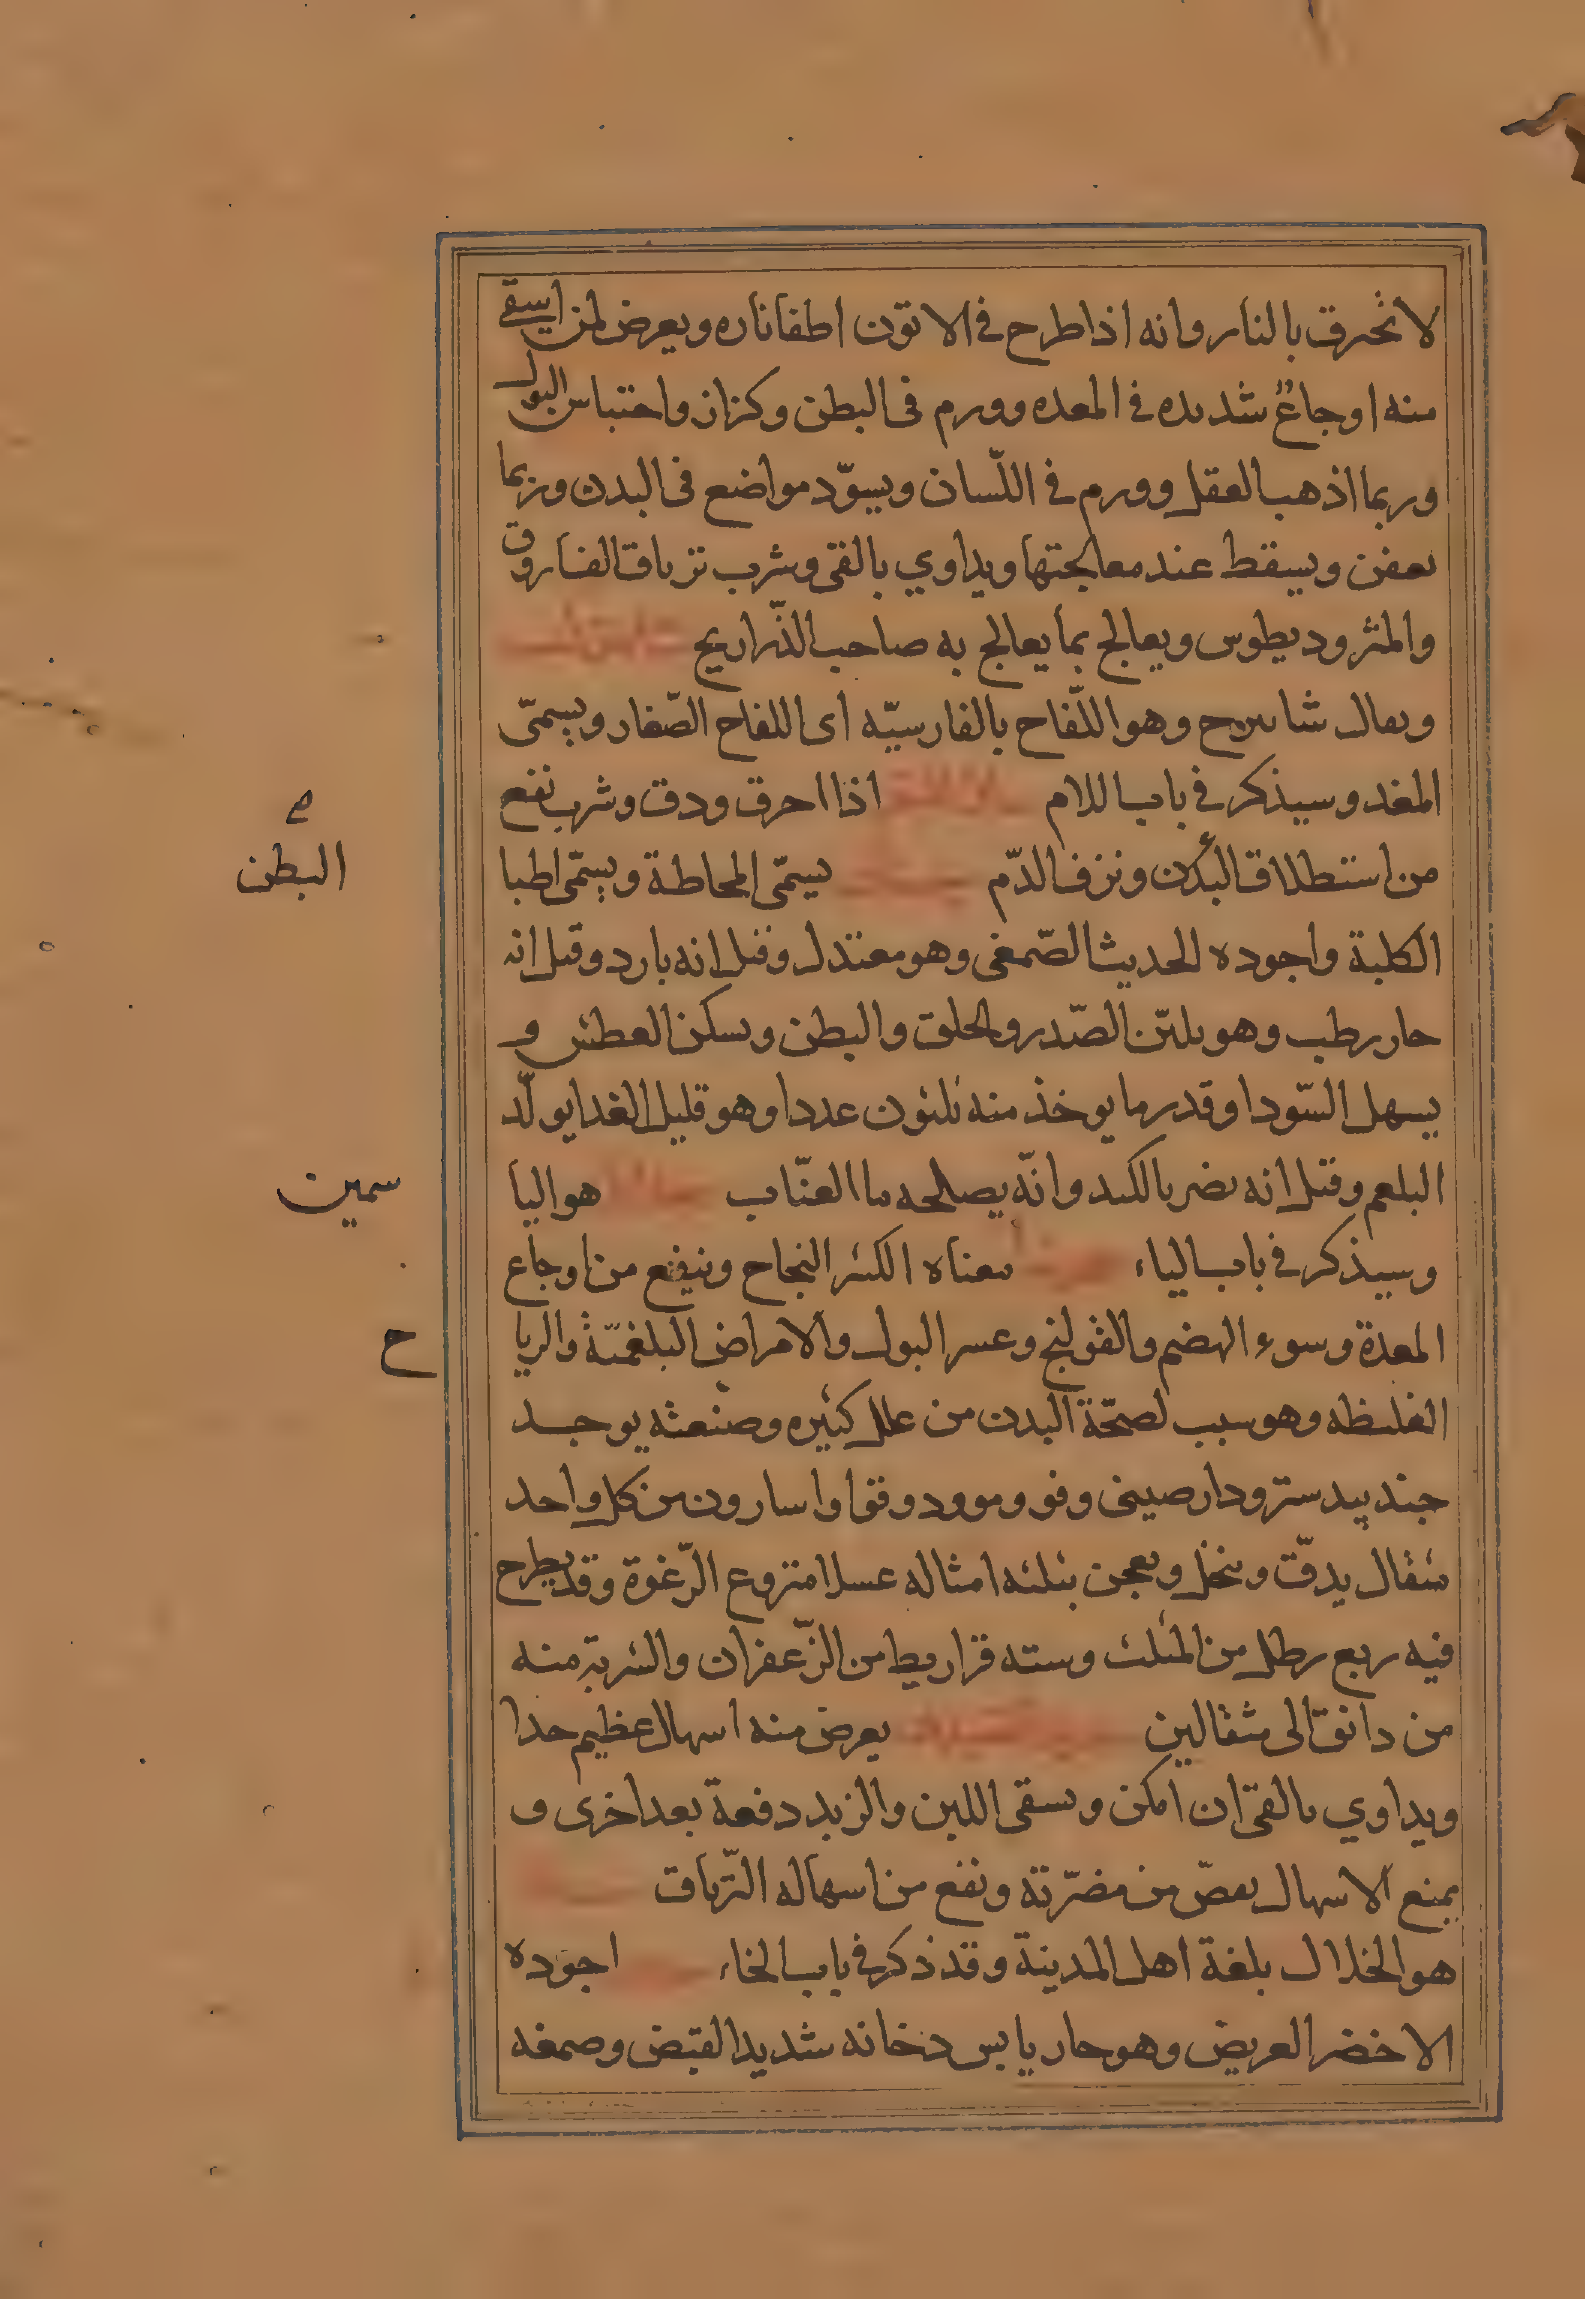 لا تحرق بالنار وانه اذا طرح فى الاتون اطفا ناره ويعرض لمن اسقى
منه اوجاع شديده فى المعده وورم فى البطن وكزاز واحتباس البول
وربما اذهب العقل وورم فى اللّسان ويسوّد مواضع فى البدن وربما
يعفن ويسقط عند معالجتها ويداوي بالقى وشرب ترياق الفاروق
والمثروديطوس ويعالج بما يعالج به صاحب الذّراريح
ويقال شابيرج وهو اللّفاح بالفارسيّه اى اللفاح الصّغار ويسمّى
المغد وسيذكر فى باب اللام اذا احرق ودق وشرب نفع
من استطلاق البدن ونزف الدّم يسمّى المخاطة ويسمّى اطبا
البطن
الكلبة واجوده الحديث الصّمغى وهو معتدل وقيل انه بارد وقيل انه
حار رطب وهو يليّن الصّدر والحلق والبطن ويسكن العطش و
يسهل السّودا وقدر ما يوخذ منه ثلثون عددا وهو قليل الغدا يولّد
البلغم وقيل انه يضر بالكبد وانّه يصلحه ما العنّاب هو اليا
سمين
وسيذكر فى باب الياء معناه الكثير النجاح وينفع من اوجاع
المعدة وسوء الهضم والقولنج وعسر البول والامراض البلغميّة والريا
ح
الغليظه وهو سبب لصحّة البدن من علل كثيره وصنعته يوجد
جند بيدستر ودارصينى وفو وموود وقوا واسارون من كل واحد
مثقال يدقّ وينخل ويعجن بثلثه امثاله عسلا منزوع الرّغوة وقد يطرح
فيه ربع رطل من المثلث وسته قراريط من الزّعفران والشربة منه
من دانق الى مثقالين يعرض منه اسهال عظيم جدا
ويداوي بالقى ان امكن ويسقى اللبن والزبد دفعة بعد اخرى و
يمنع الاسهال بعض من مضرّته ونفع من اسهاله التّرياق
هو الخلال بلغة اهل المدينة وقد ذكر فى باب الخاء اجوده
الاخضر العريض وهو حار يابس دخانه شديد القبض وصمغه